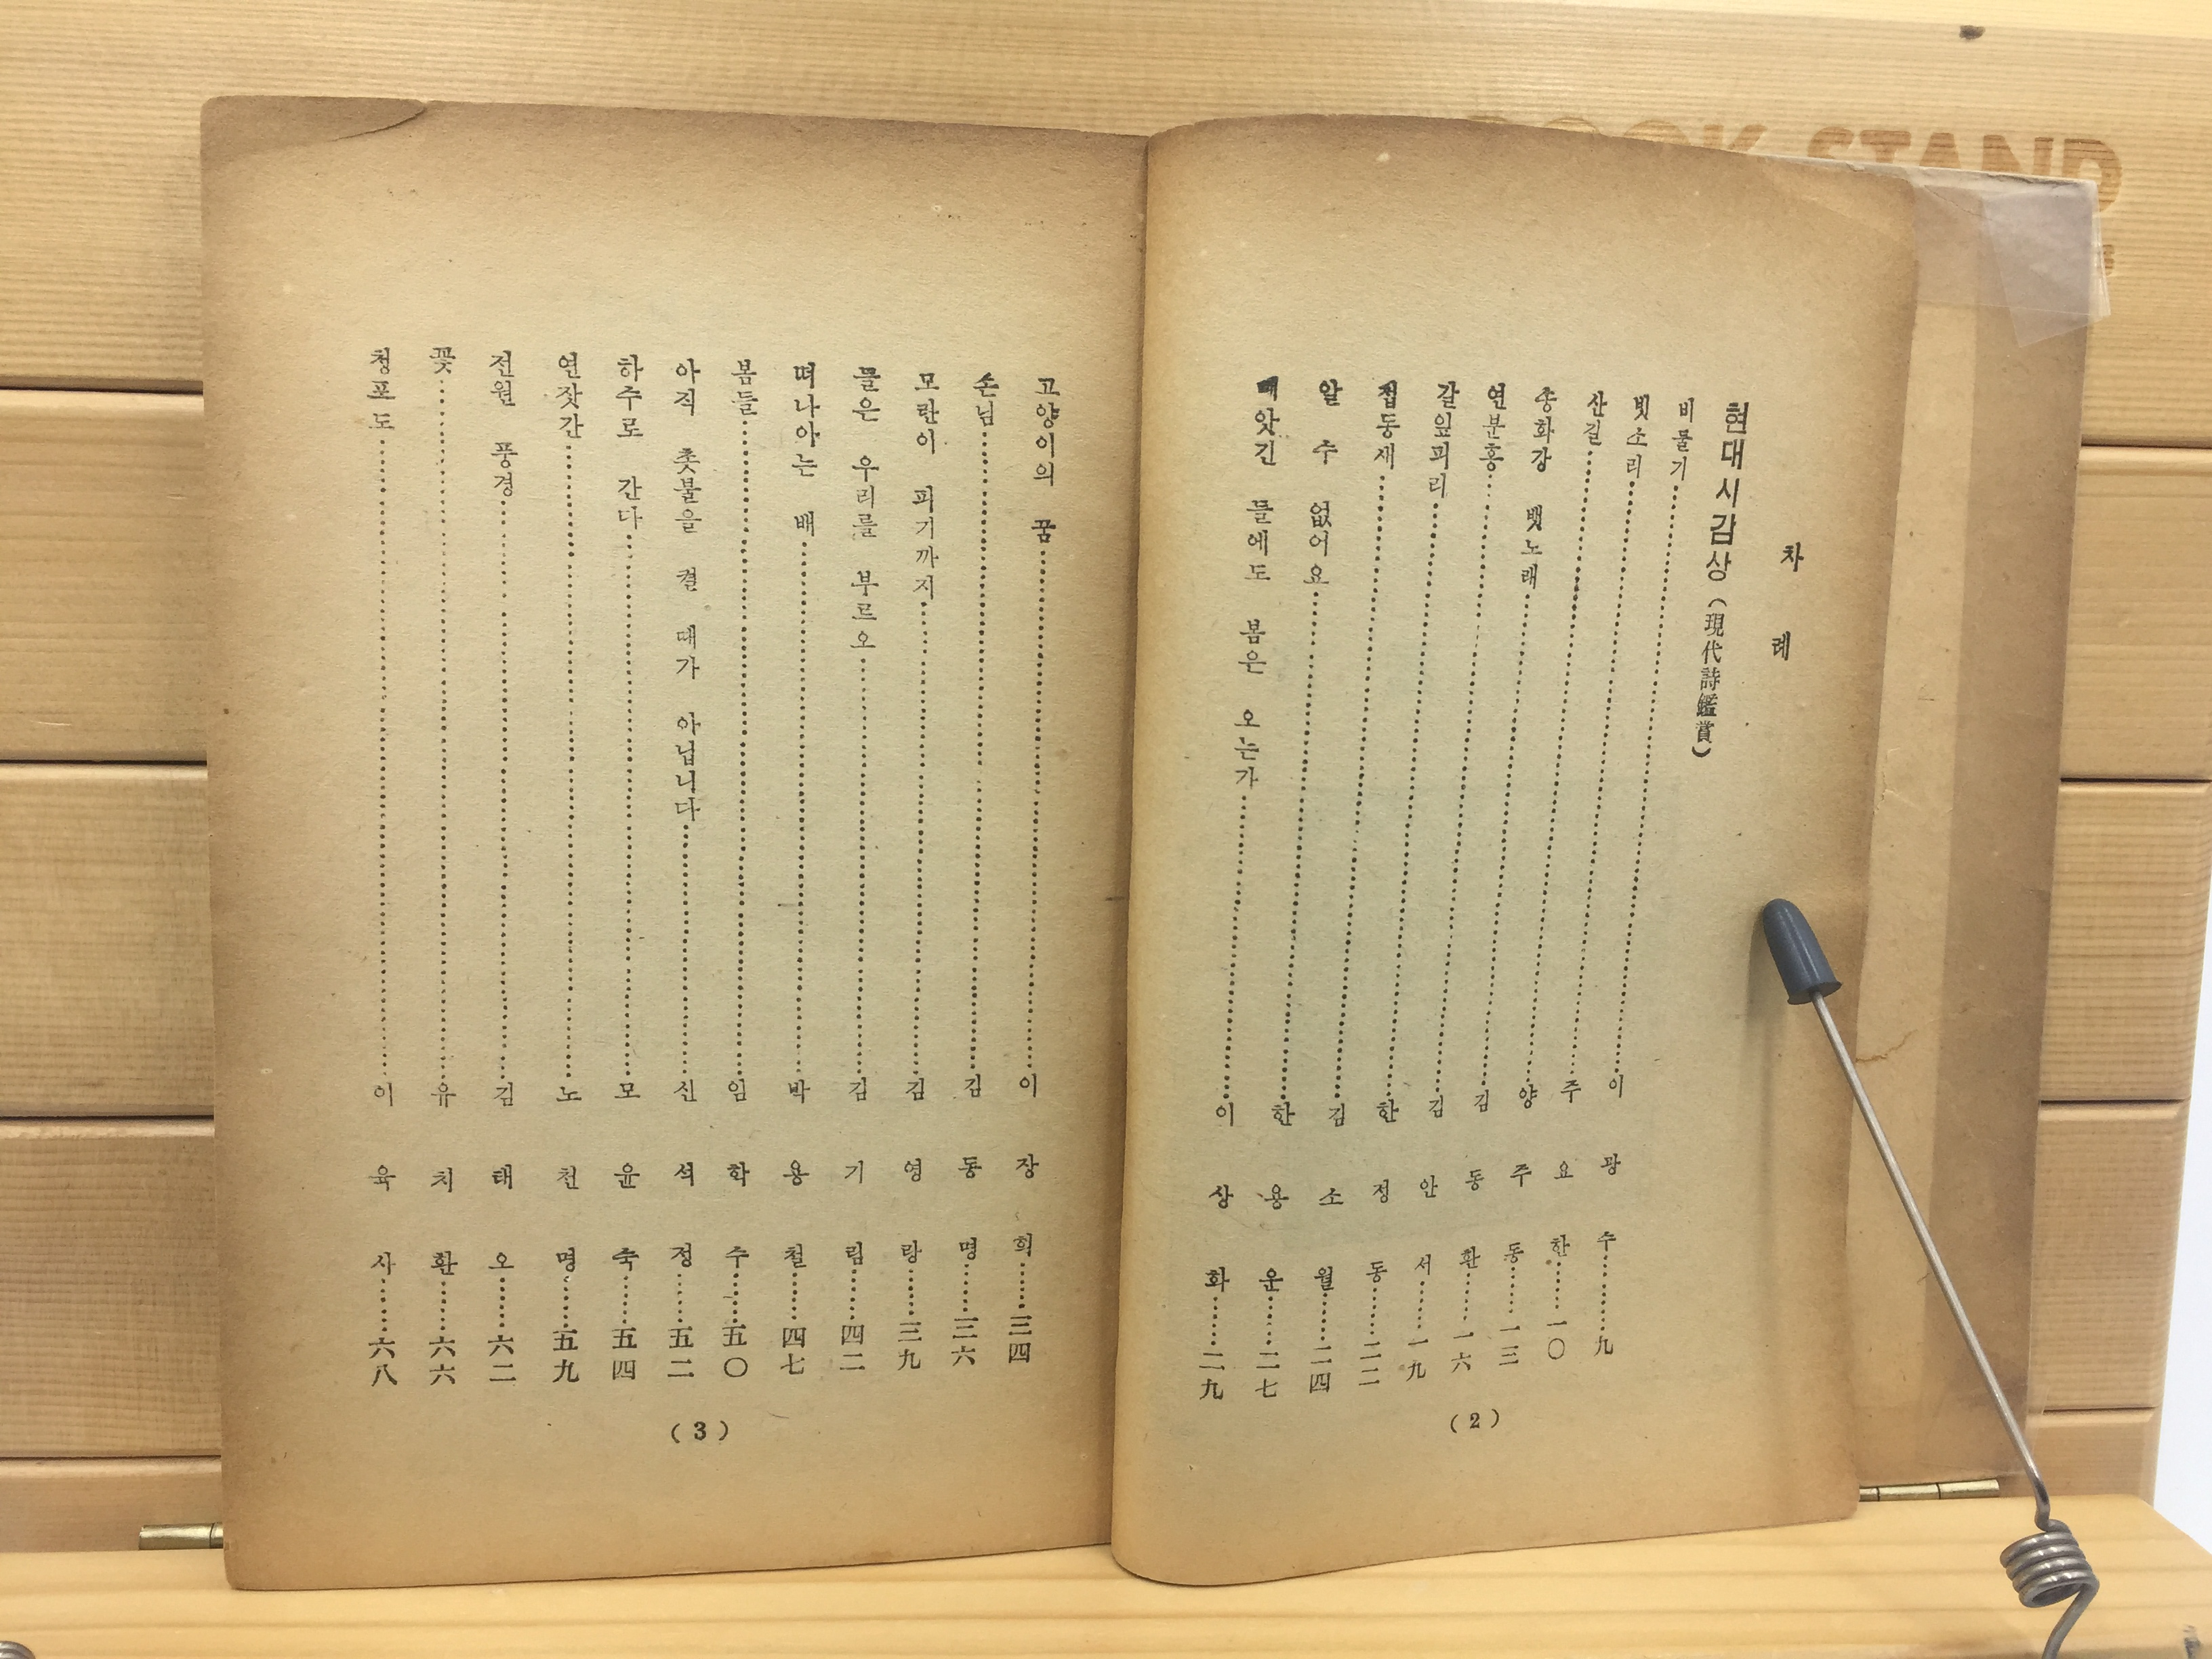 BOOK STAND
차 례
현대시감상 (現代詩鑑賞)
비둘기……이 광 수……九
빗소리……주 요 한……一〇
산길……양 주 동……一三
송화강 뱃노래……김 동 환……一六
연분홍……김 안 서……一九
갈잎피리……한 정 동……二二
접동새……김 소 월……二四
알 수 없어요……한 용 운……二七
빼앗긴 들에도 봄은 오는가……이 상 화……二九
(2)
고양이의 꿈……이 장 희……三四
손님……김 동 명……三六
모란이 피기까지……김 영 랑……三九
들은 우리를 부르오……김 기 림……四二
떠나아는 배……박 용 철……四七
봄들……임 학 수……五〇
아직 촛불을 켤 때가 아닙니다……신 석 정……五二
하주로 간다……모 윤 숙……五四
연잣간……노 천 명……五九
전원 풍경……김 태 오……六二
꽃……유 치 환……六六
청포도……이 육 사……六八
(3)